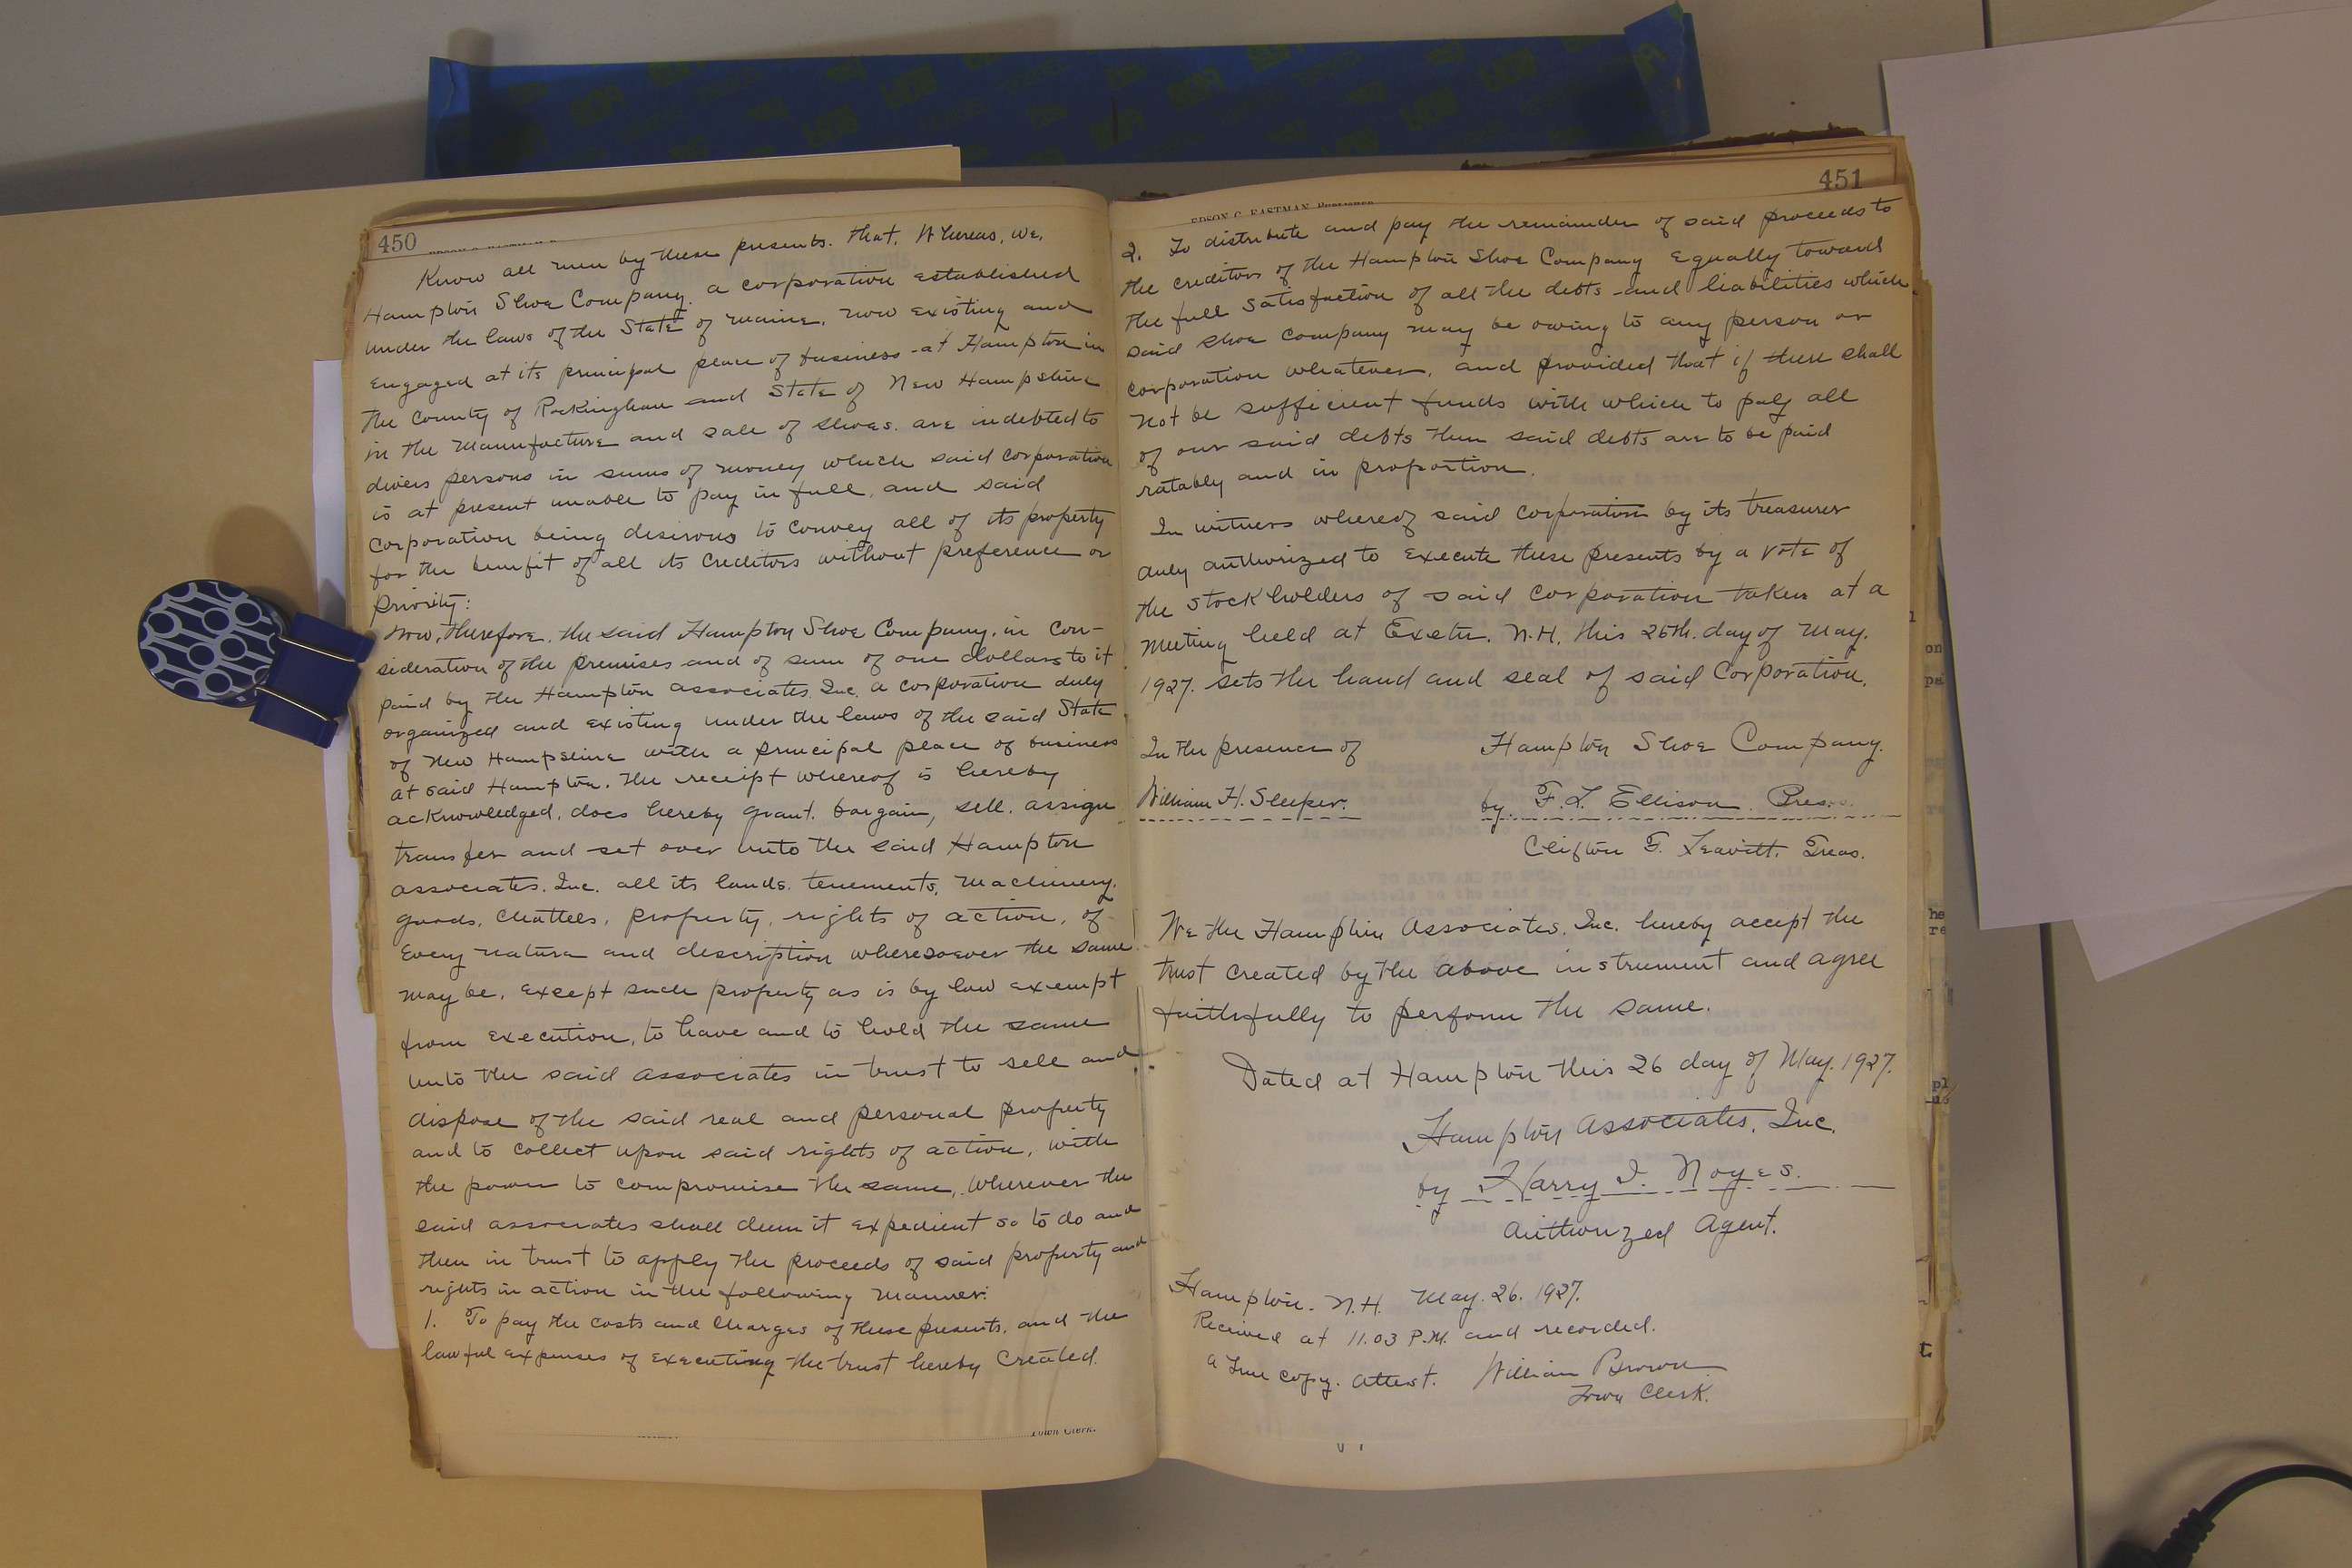 450
Know all men by these presents. that, Whereas, we,
Hampton Shoe Company, a corporation established
under the laws of the State of Maine, now existing and
engaged at its principal place of business at Hampton in
the County of Rockingham and State of New Hampshire
in the manufacture and sale of shoes. are indebted to
divers persons in sums of money which said corporation
is at present unable to pay in full, and said
corporation being desirous to convey all of its property
for the benefit of all its creditors without preference or
priority:
Now, therefore, the said Hampton Shoe Company, in con-
sideration of the premises and of sum of one dollars to it
paid by the Hampton Associates, Inc. a corporation duly
organized and existing under the laws of the said State
of New Hampshire with a principal place of business
at said Hampton. the receipt whereof is hereby
acknowledged, does hereby grant. bargain, sell. assign
transfer and set over unto the said Hampton
associates. Inc. all its lands. tenements, machinery,
goods, chattels, property, rights of action, of
every nature and description wheresoever the same
may be, except such property as is by law exempt
from execution, to have and to hold the same
unto the said associates in trust to sell and
dispose of the said real and personal property
and to collect upon said rights of action, with
the power to compromise the same, wherever the
said associates shall deem it expedient so to do and
then in trust to apply the proceeds of said property and
rights in action in the following manner:
1. To pay the costs and charges of these presents, and the
lawful expenses of executing the trust hereby created.
Town Clerk.
451
EDSON C. EASTMAN, Publisher
2. To distribute and pay the remainder of said proceeds to
the creditors of the Hampton Shoe Company equally toward
the full satisfaction of all the debts and liabilities which
said shoe company may be owing to any person or
corporation whatever, and provided that if there shall
not be sufficient funds with which to pay all
of our said debts then said debts are to be paid
ratably and in proportion.
In witness whereof said corporation by its treasurer
duly authorized to execute these presents by a vote of
the stockholders of said corporation taken at a
meeting held at Exeter. N.H. this 26th. day of May.
1927. sets the hand and seal of said corporation.
In the presence of Hampton Shoe Company.
William H. Sleeper. by F. L. Ellison. Pres.
Clifton G. Leavitt. Treas.
We the Hampton Associates, Inc. hereby accept the
trust created by the above instrument and agree
faithfully to perform the same.
Dated at Hampton this 26 day of May. 1927.
Hampton Associates, Inc.
by Harry I. Noyes.
Authorized Agent.
Hampton. N.H. May. 26. 1927.
Received at 11.03 P.M. and recorded.
a true copy. Attest. William Brown
Town Clerk.